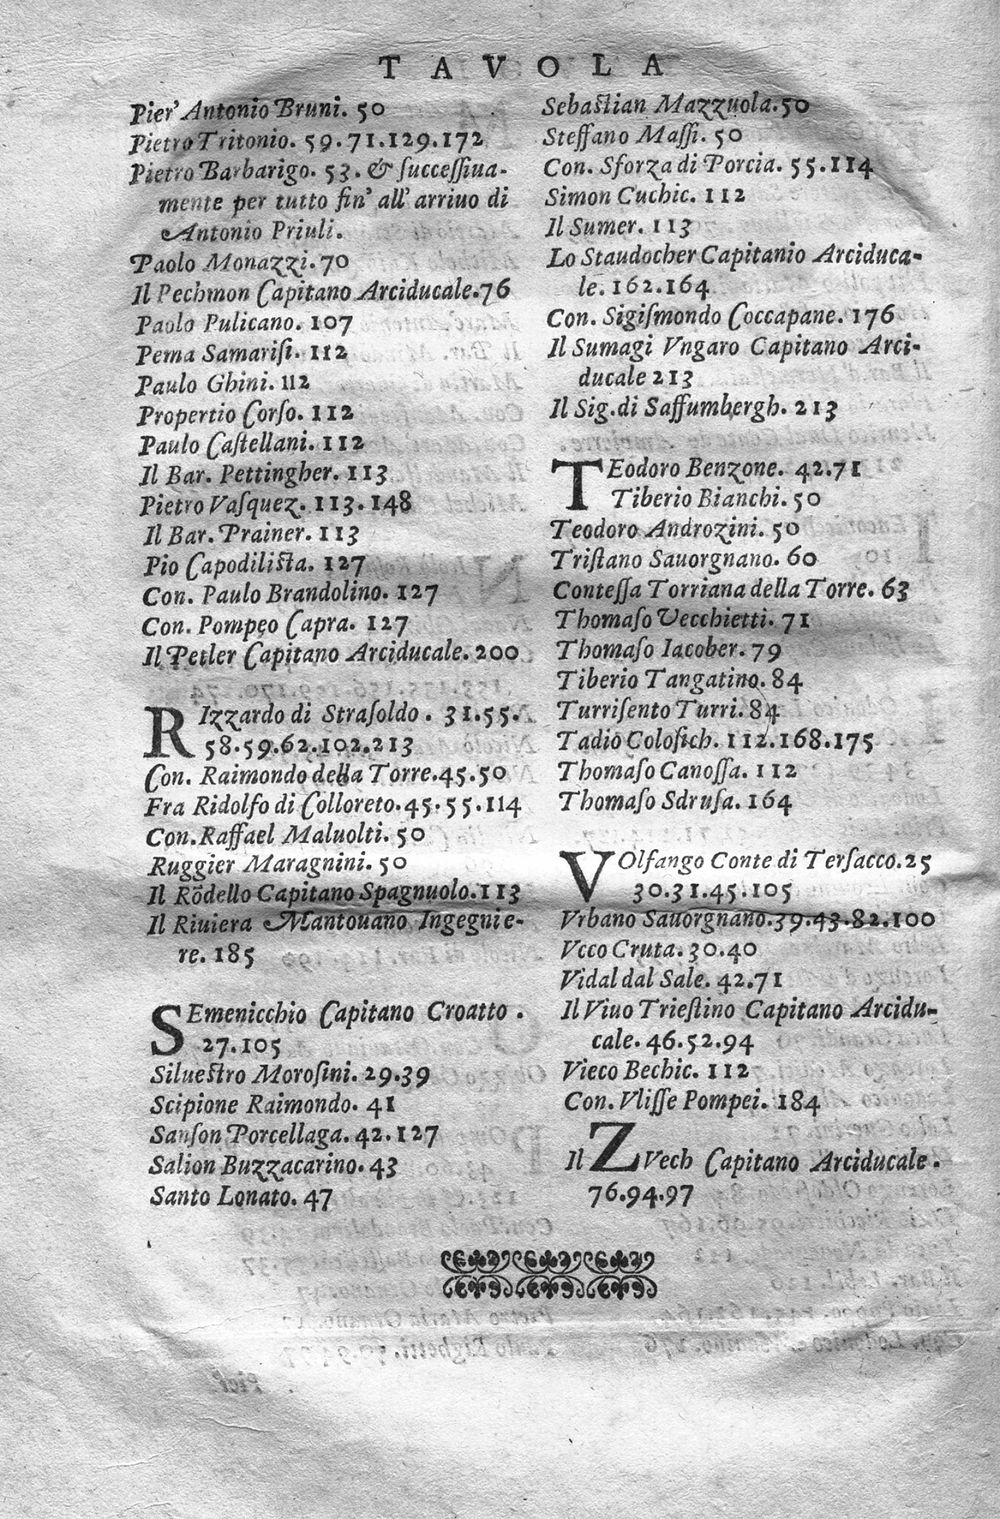 TAVOLA
Pier' Antonio Bruni. 50
Pietro Tritonio. 59.71.129.172
Pietro Barbarigo. 53. & ſucceſſiua-
mente per tutto fin' all' arriuo di
Antonio Priuli.
Paolo Monazzi. 70
Il Pechmon Capitano Arciducale. 76
Paolo Pulicano. 107
Pema Samariſi. 112
Paulo Ghini. 112
Propertio Corſo. 112
Paulo Caſtellani. 112
Il Bar. Pettingher. 113
Pietro Vaſquez. 113.148
Il Bar. Prainer. 113
Pio Capodiliſta. 127
Con. Paulo Brandolino. 127
Con. Pompeo Capra. 127
Il Petler Capitano Arciducale. 200
RIzzardo di Straſoldo. 31.55.
58.59.62.102.213
Con. Raimondo della Torre. 45.50
Fra Ridolfo di Colloreto. 45.55.114
Con. Raffael Maluolti. 50
Ruggier Maragnini. 50
Il Rōdello Capitano Spagnuolo. 113
Il Riuiera Mantouano Ingegnie-
re. 185
SEmenicchio Capitano Croatto.
27.105
Silueſtro Moroſini. 29.39
Scipione Raimondo. 41
Sanſon Porcellaga. 42.127
Salion Buzzacarino. 43
Santo Lonato. 47
Sebaſtian Mazzuola. 50
Steffano Maſſi. 50
Con. Sforza di Porcia. 55.114
Simon Cuchic. 112
Il Sumer. 113
Lo Staudocher Capitanio Arciduca-
le. 162.164
Con. Sigiſmondo Coccapane. 176
Il Sumagi Vngaro Capitano Arci-
ducale 213
Il Sig. di Saffumbergh. 213
TEodoro Benzone. 42.71
Tiberio Bianchi. 50
Teodoro Androzini. 50
Triſtano Sauorgnano. 60
Conteſſa Torriana della Torre. 63
Thomaſo Vecchietti. 71
Thomaſo Iacober. 79
Tiberio Tangatino. 84
Turriſento Turri. 84
Tadio Coloſich. 112.168.175
Thomaſo Canoſſa. 112
Thomaſo Sdruſa. 164
VOlfango Conte di Terſacco. 25
30.31.45.105
Vrbano Sauorgnano. 39.43.82.100
Vcco Cruta. 30.40
Vidal dal Sale. 42.71
Il Viuo Trieſtino Capitano Arcidu-
cale. 46.52.94
Vieco Bechic. 112
Con. Vliſſe Pompei. 184
Il ZVech Capitano Arciducale.
76.94.97